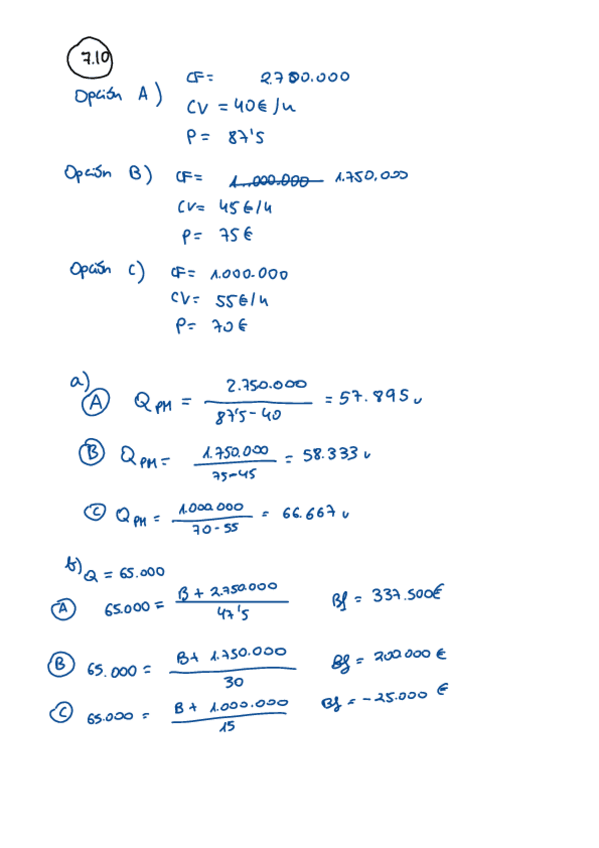 7.10
Opción A) CF= 2.750.000
CV = 40€/u
P= 87'5
Opción B) CF= 1..000.000 1.750.000
CV= 45€/u
P= 75€
Opción C) CF= 1.000.000
CV= 55€/u
P= 70€
a)
A Q PM = 2.750.000 / 87'5-40 = 57.895 u
B Q PM = 1.750.000 / 75-45 = 58.333 u
C Q PM = 1.000.000 / 70-55 = 66.667 u
b) Q = 65.000
A 65.000 = B + 2.750.000 / 47'5 Bf = 337.500€
B 65.000 = B+ 1.750.000 / 30 Bf = 200.000 €
C 65.000 = B + 1.000.000 / 15 Bf = -25.000 €